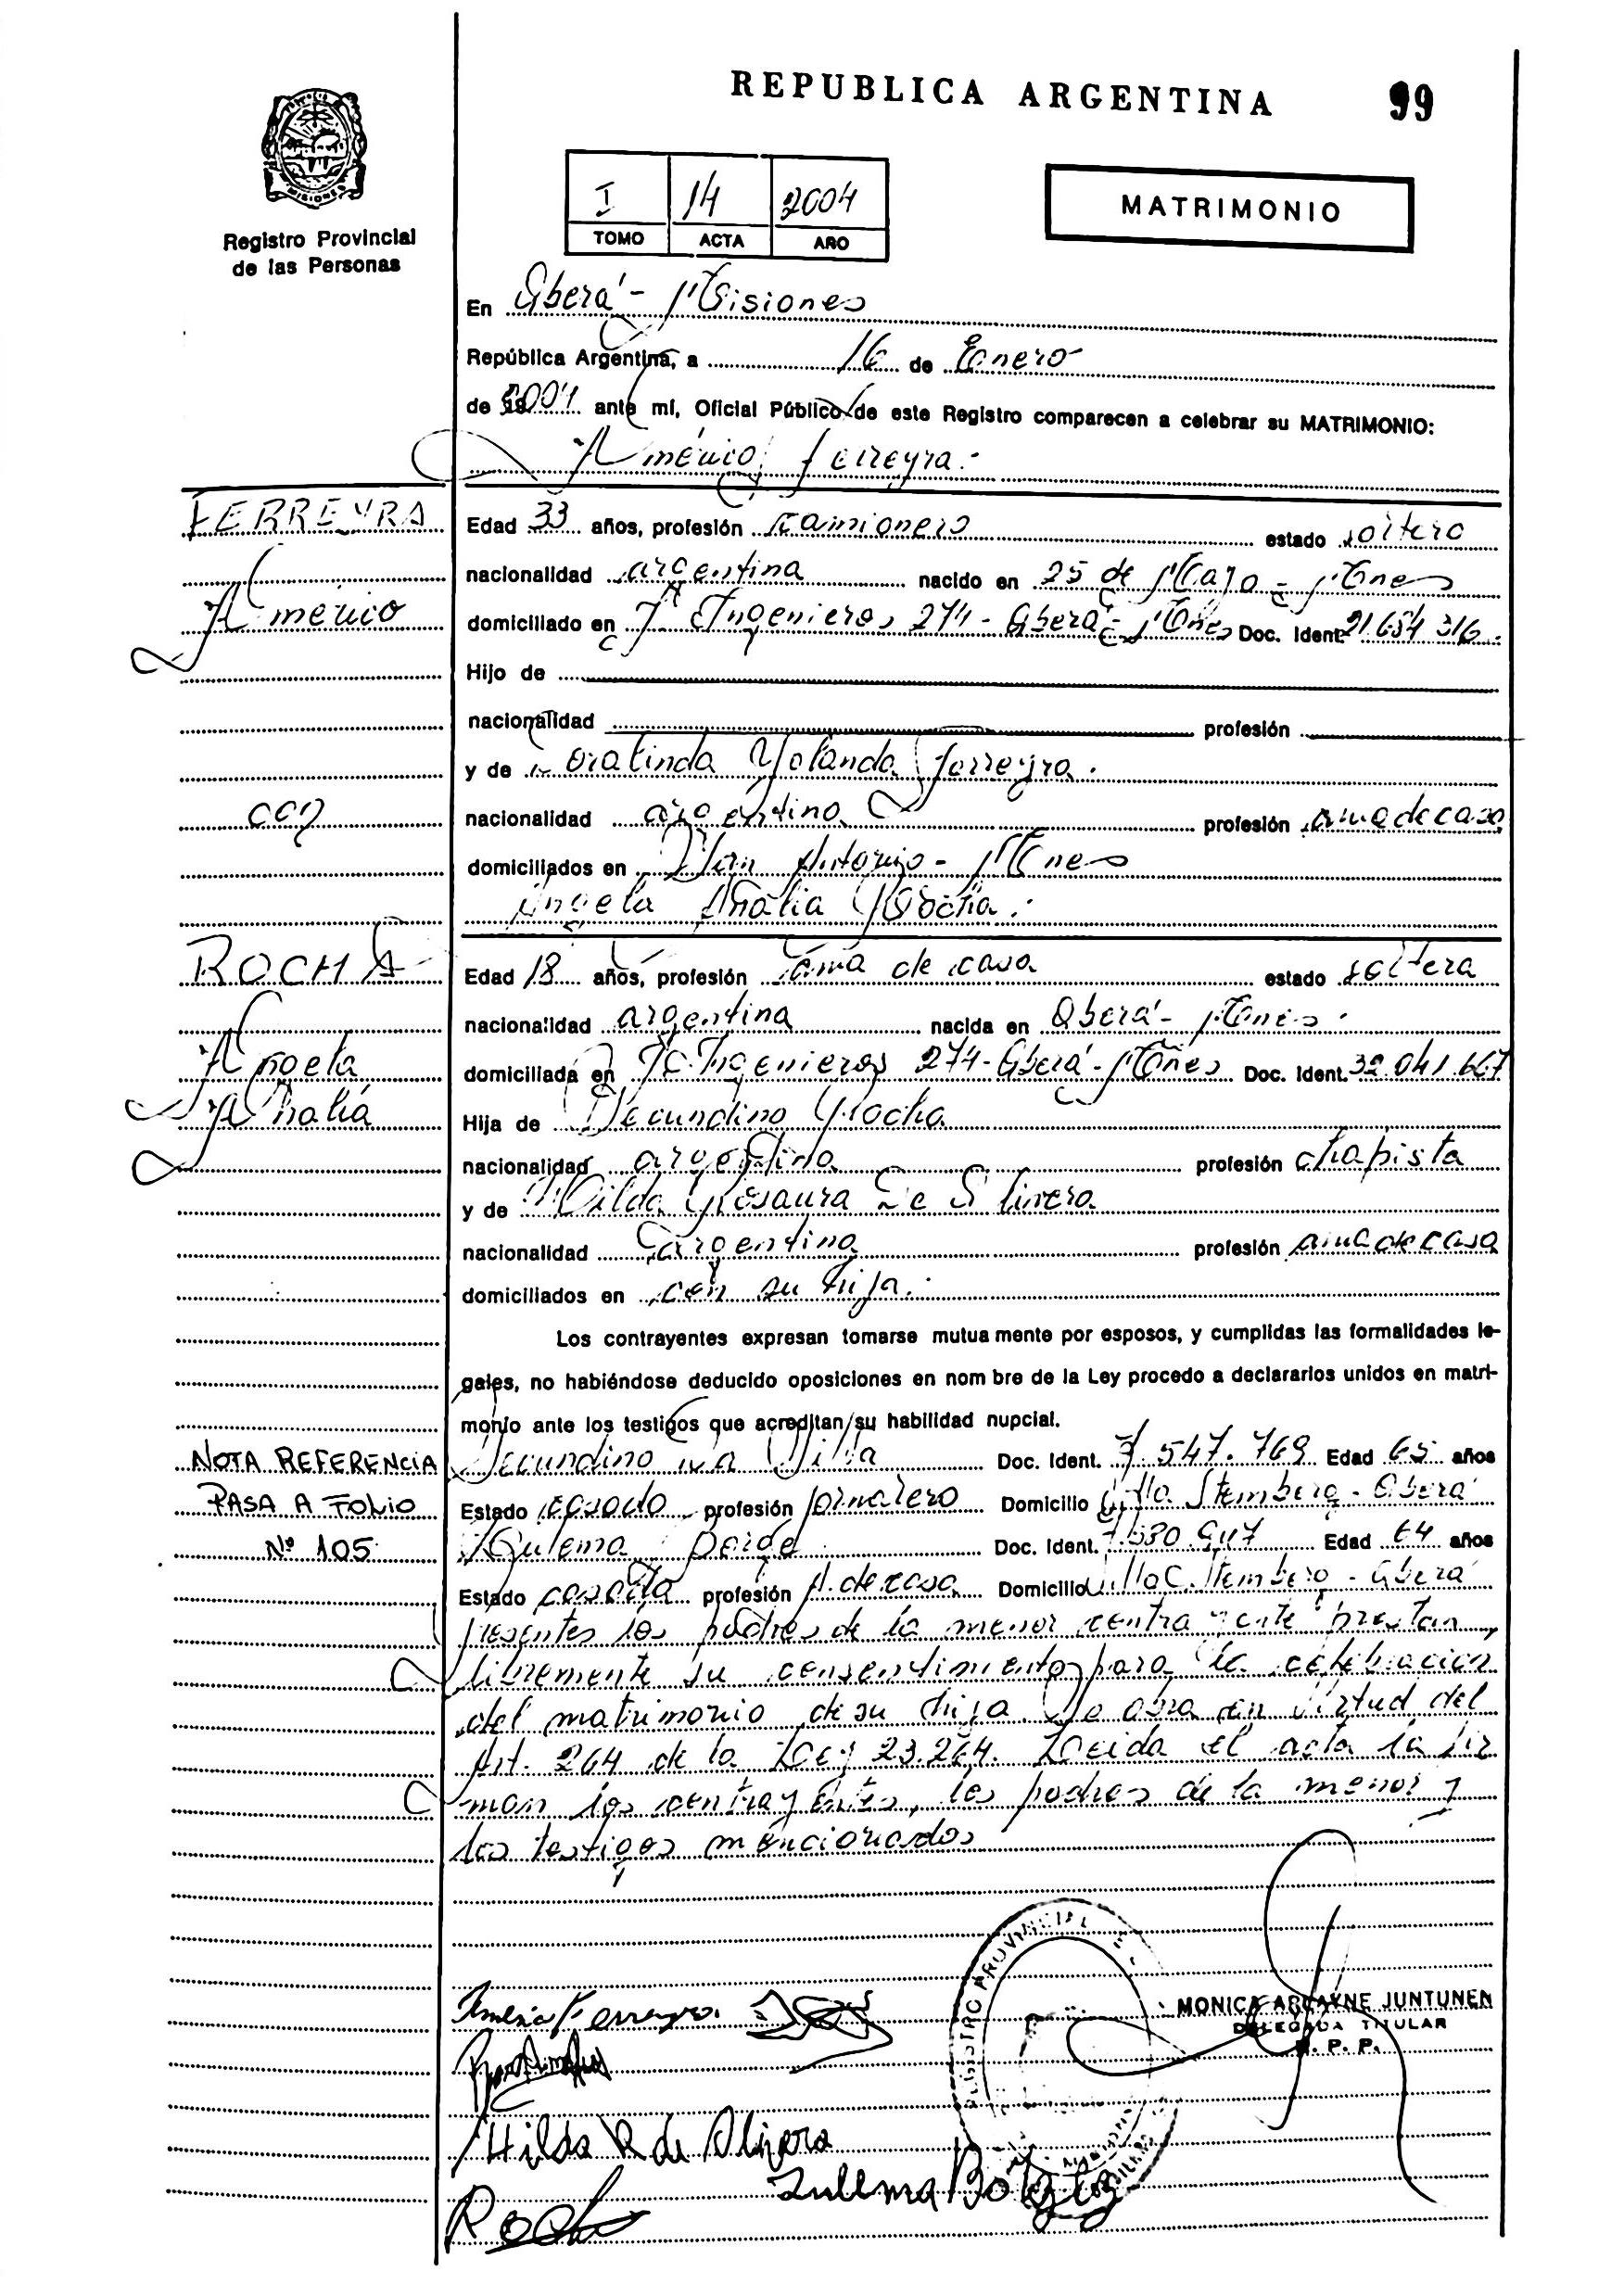 REPUBLICA ARGENTINA 99
MISIONES
Registro Provincial
de las Personas
I 14 2004
TOMO ACTA AÑO
MATRIMONIO
En Oberá - Misiones
República Argentina, a 16 de Enero
de 2004 ante mí, Oficial Público de este Registro comparecen a celebrar su MATRIMONIO:
Américo Ferreyra.
FERREYRA
Américo
con
Edad 33 años, profesión camionero estado soltero
nacionalidad argentina nacido en 25 de Mayo - Mnes
domiciliado en J. Ingenieros 274 - Oberá - Mnes Doc. Ident. 21.654.316.
Hijo de
nacionalidad profesión
y de Yolanda Ferreyra.
nacionalidad argentina profesión ama de casa
domiciliados en San Antonio - Mnes
Angela Analía Rocha.
ROCHA
Angela
Analía
Edad 18 años, profesión ama de casa estado soltera
nacionalidad argentina nacida en Oberá - Mnes.
domiciliada en J. Ingenieros 274 - Oberá - Mnes Doc. Ident. 32.041.667
Hija de Secundino Rocha
nacionalidad argentina profesión chapista
y de Hilda Rosaura De Olivera
nacionalidad argentina profesión ama de casa
domiciliados en con su hija.
Los contrayentes expresan tomarse mutua mente por esposos, y cumplidas las formalidades le-
gales, no habiéndose deducido oposiciones en nom bre de la Ley procedo a declararlos unidos en matri-
monio ante los testigos que acreditan su habilidad nupcial.
NOTA REFERENCIA
PASA A FOLIO
Nº 105
Secundino Da Silva Doc. Ident. 7.547.769 Edad 65 años
Estado casado profesión jornalero Domicilio Villa Stemberg - Oberá
Zulema Doc. Ident. Edad 64 años
Estado casada profesión A. de casa Domicilio Villa C. Stemberg - Oberá
presentes los padres de la menor contrayente prestan
libremente su consentimiento para la celebración
del matrimonio de su hija. Se obra en virtud del
Art. 264 de la Ley 23.264. Leida el acta la fir
man los contrayentes, los padres de la menor y
los testigos mencionados
Ferreyra
MONICA ARCAYNE JUNTUNEN
DELEGADA TITULAR
R. P. P.
REGISTRO PROVINCIAL
Hilda R de Olivera
Zulema
Rocha